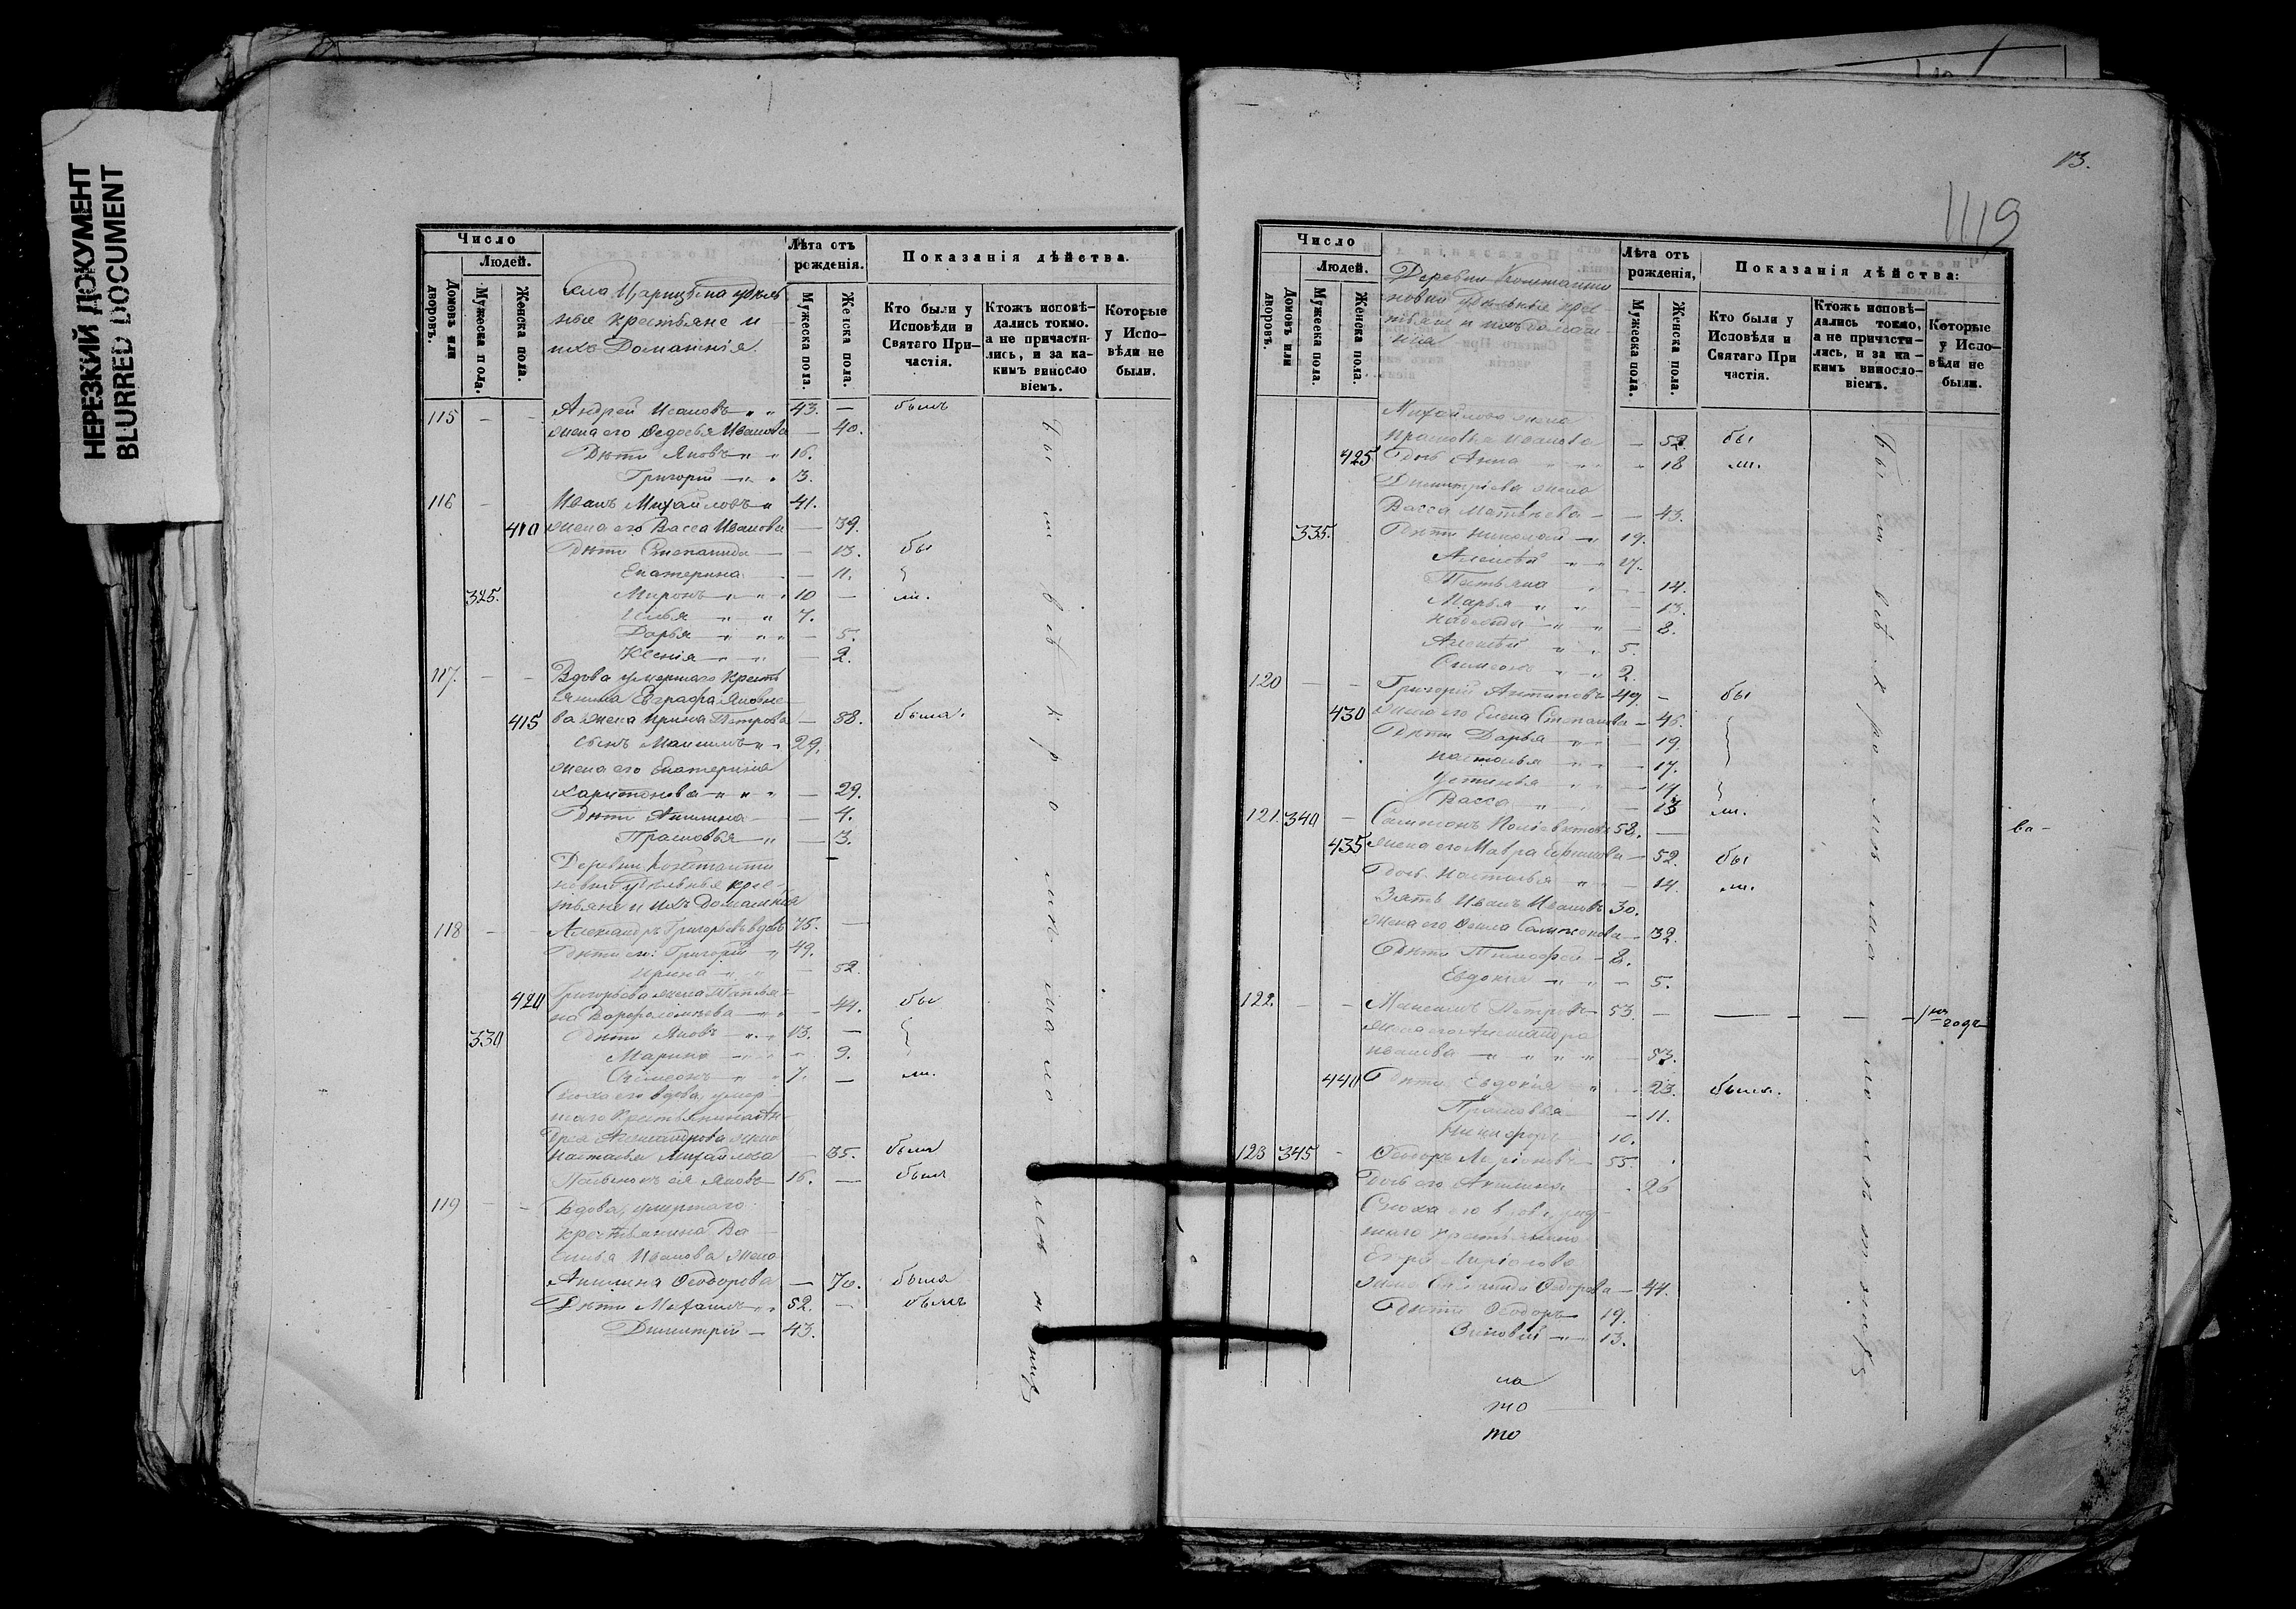 НЕРЕЗКИЙ ДОКУМЕНТ
BLURRED DOCUMENT
Число
Людей.
Домовъ или дворовъ.
Мужеска пола.
Женска пола.
Села Царицына удѣль
ные крестьяне и
ихъ Домашнія.
Лѣта отъ рожденія.
Мужеска пола.
Женска пола.
Показанія дѣйства.
Кто были у Исповѣди и Святаго Причастія.
Ктожъ исповѣдались токмо. а не причастились, и за какимъ винословіемъ.
Которые у Исповѣди не были.
115 – – Андрей Ивановъ " " 43. – былъ
жена его Ѳедосья Иванова – 40.
Дѣти Яковъ " " 16.
Григорій – " " 13.
116 – Иванъ Михайловъ " 41.
410 жена его Васса Иванова – 39.
Дѣти Степанида – – 13. бы
Екатерина – 11.
325. Миронъ " " " 10 – ли.
Илья " " 7.
Дарья " " " – 5.
Ксенія " " – 2.
117. – – Вдова умершаго кресть
янина Евграфа Яковле
415 ва жена Ирина Петрова – 58. была.
сынъ Максимъ " " 29.
жена его Екатерина
Харитонова " " " – 29.
Дѣти Акилина – – 4.
Прасковья " – 3.
Деревни Константи
новки удѣльныя крес
тьяне и ихъ домашнія
118 – – Александръ Григорьевъ вдовъ 75. –
Дѣти его: Григорій " 49.
Ирина " " – 52.
420 Григорьева жена Татья
на Варфоломѣева " " – 44. бы
330 дѣти Яковъ " " 13. –
Марина – 9.
Симеонъ " " 7. – ли.
Сноха его вдова, умер
шаго крестьянина Ан
дрея Александрова жена
Настасья Михайлова – 35. была
Пасынокъ ея Яковъ 16. – былъ
119 – – Вдова, умершаго
крестьянина Ва
силья Иванова жена
Акилина Ѳеодорова – 70. была
Дѣти Михаилъ " " 52. – былъ
Димитрій – 43.
13.
1119
Число
Людей.
Домовъ или дворовъ.
Мужеска пола.
Женска пола.
Деревни Константи
новки удѣльные крес
тьяне и ихъ домаш
нія
Лѣта отъ рожденія,
Мужеска пола.
Женска пола.
Показанія дѣйства:
Кто были у Исповѣди и Святаго При частія.
Ктожь исповѣдались токмо, а не причастились, и за какимъ винословіемъ.
Которые у Исповѣди не были.
Михайлова жена
Прасковья Иванова – 52. бы
425 дочь Анна " " " 18 ли.
Димитріева жена
Васса Матвѣева – – 43.
335. Дѣти Николай – " 19.
Алексѣй " " 17.
Татьяна " – 14.
Марья " " – 13.
Надежда " " – 8.
Алексѣй " " 5.
Симеонъ " " 2.
120 – – Григорій Антиповъ 49. – бы
430 жена его Елена Степанова – 46.
Дѣти Дарья " " – 19.
Настасья " " – 17.
Устинья " " – 14.
Васса " – 13 ли.
121. 340 – Сампсонъ Поліевктовъ 52. –
435 жена его Мавра Ефимова – 52. бы
Дочь Настасья " " – 14. ли.
Зять Иванъ Ивановъ 30.
жена его Ѳекла Сампсонова – 32.
Дѣти Тимофей – 8.
Евдокія " " – 5.
122. – – Максимъ Петровъ 53. – – – – 1й годъ
жена его Александра
Иванова " " " " – 53.
440 Дѣти Евдокія " – 23. была.
Прасковья – 11.
Никифоръ 10.
123 345 – Ѳеодоръ Ларіоновъ 55.
Дочь его Акилина – 26
Сноха его вдова, умер
шаго крестьянина
Егора Ларіонова
жена Степанида Ѳеодорова – 44.
Дѣти Ѳеодоръ 19.
Зиновій " " 13.
ва –
на
то
то